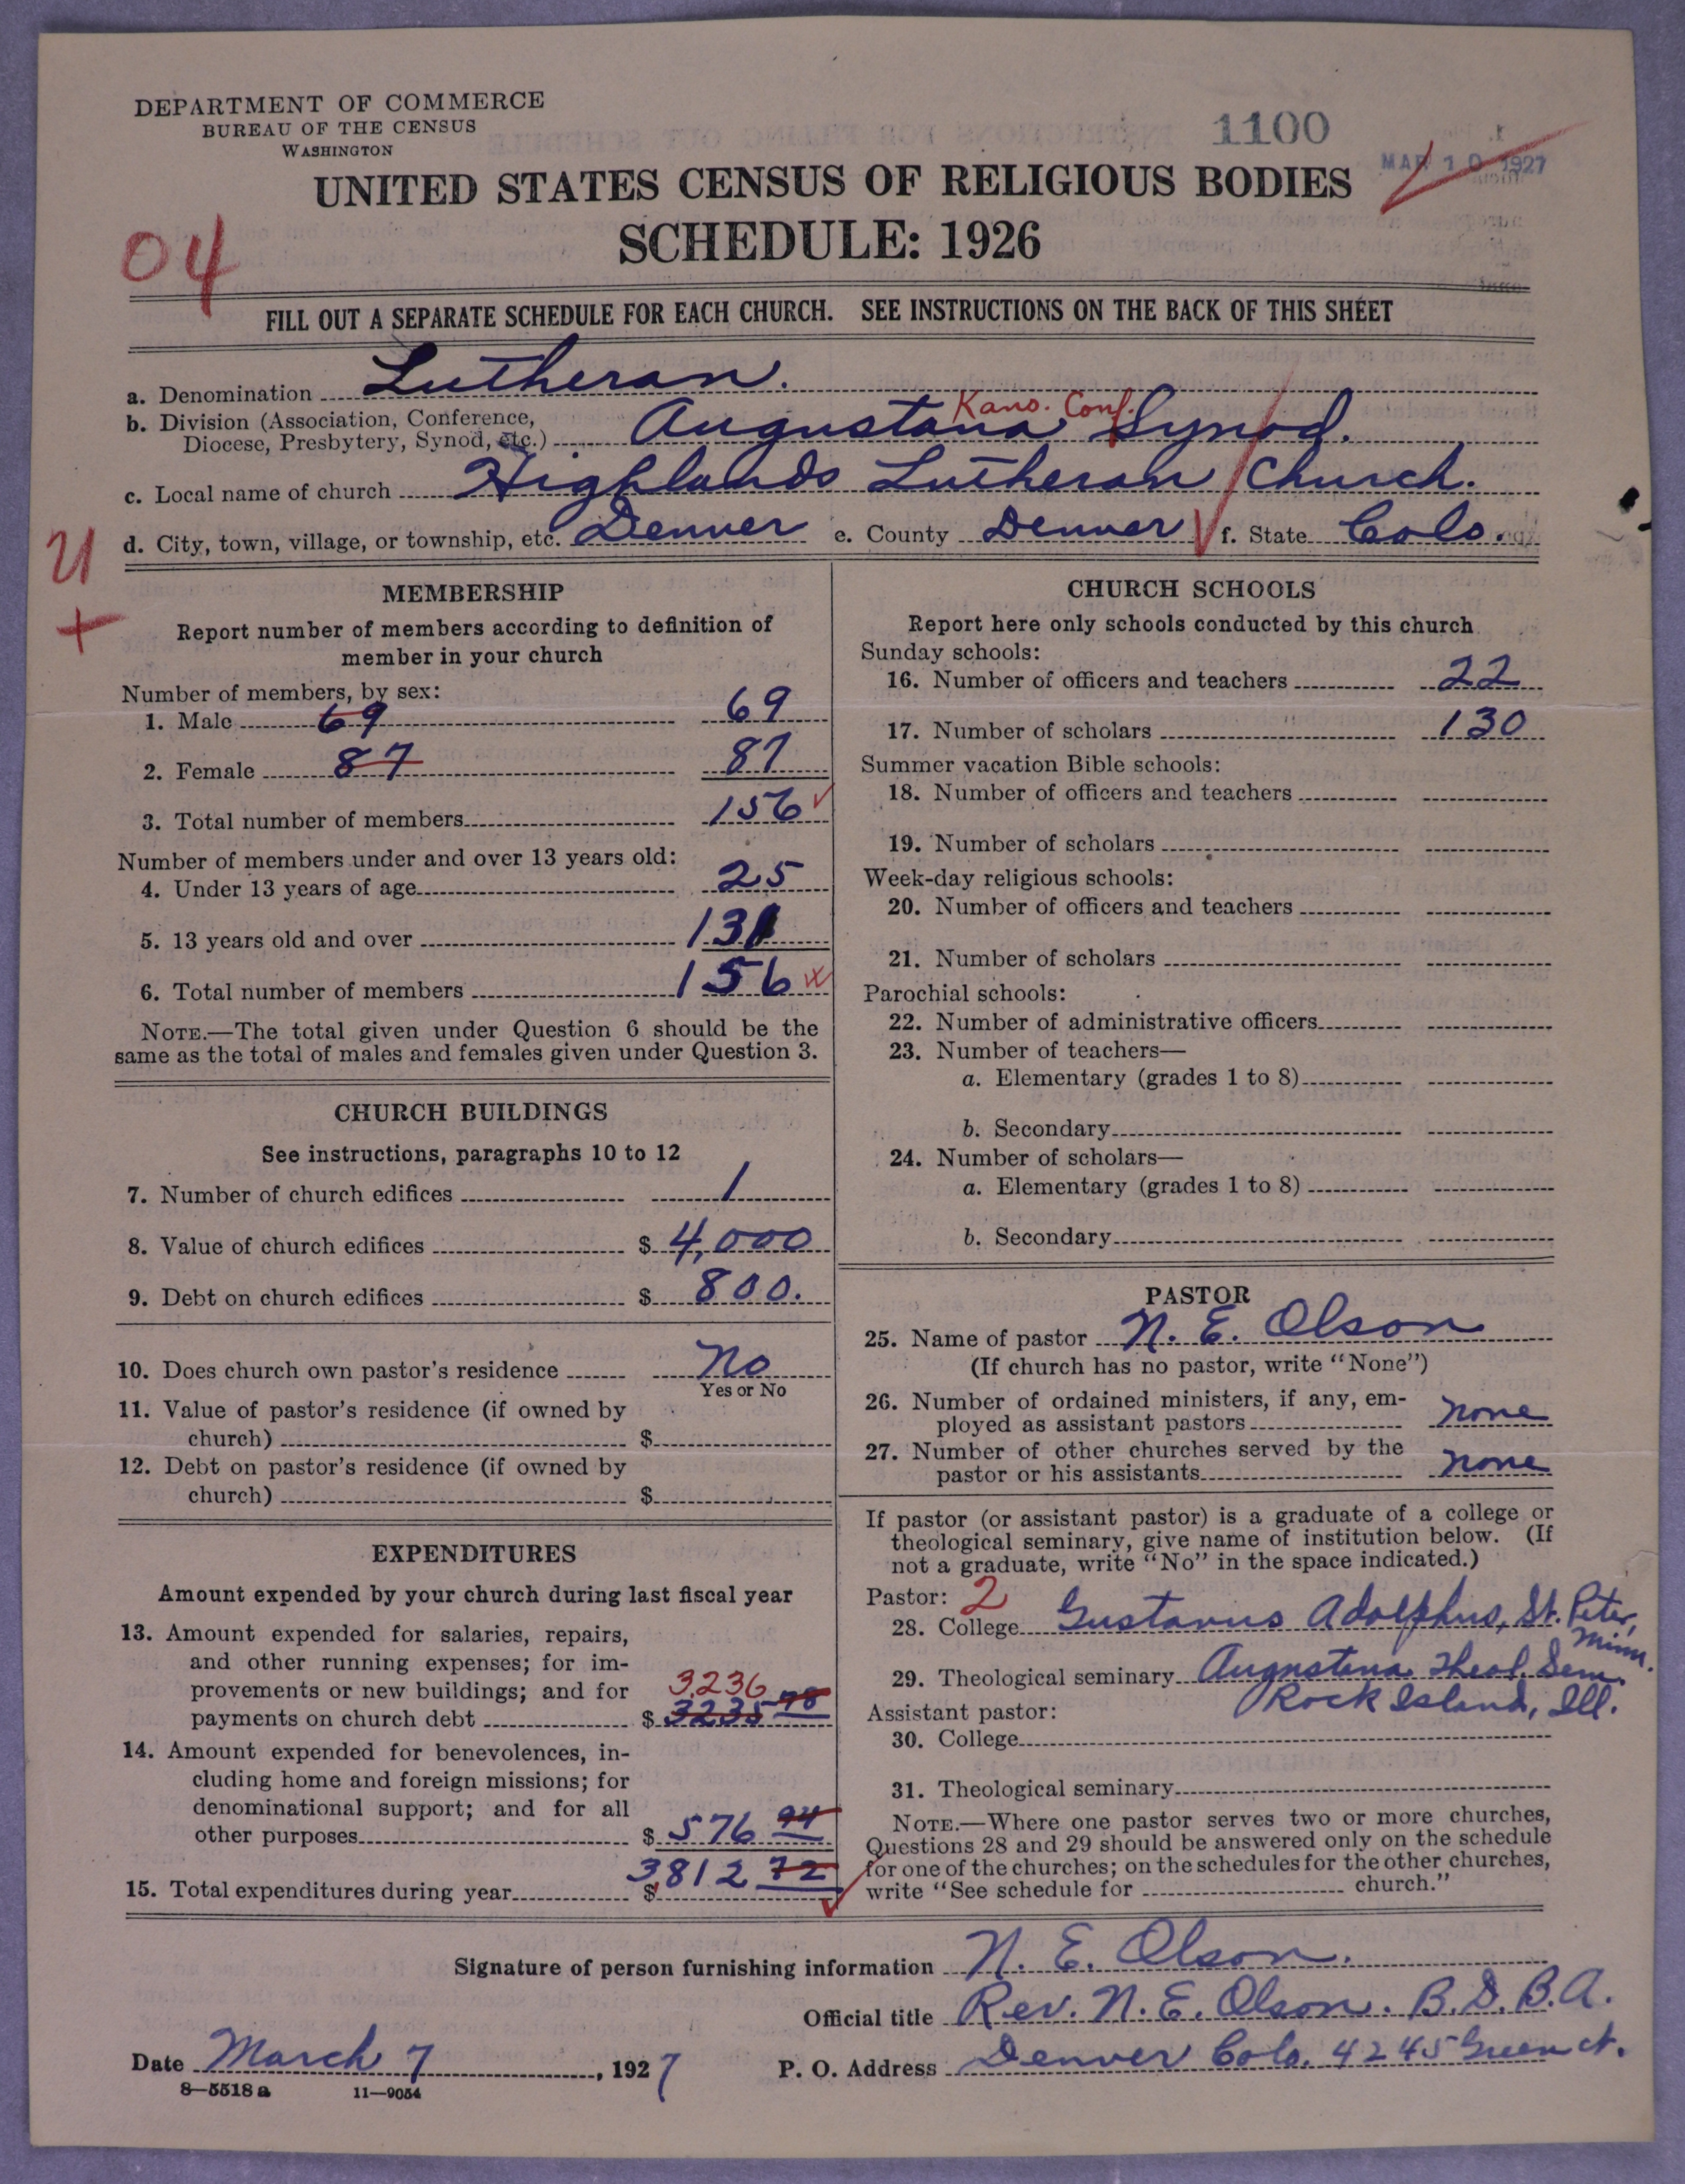 DEPARTMENT OF COMMERCE
BUREAU OF THE CENSUS
WASHINGTON
1100
MAR 10 1927
UNITED STATES CENSUS OF RELIGIOUS BODIES
SCHEDULE: 1926
04
FILL OUT A SEPARATE SCHEDULE FOR EACH CHURCH. SEE INSTRUCTIONS ON THE BACK OF THIS SHEET
a. Denomination Lutheran.
Kans. Conf.
b. Division (Association, Conference,
Diocese, Presbytery, Synod, etc.) Augustana Synod.
c. Local name of church Highlands Lutheran Church.
d. City, town, village, or township, etc. Denver e. County Denver f. State Colo.
U
+
MEMBERSHIP
Report number of members according to definition of
member in your church
Number of members, by sex:
1. Male 69 69
2. Female 87 87
3. Total number of members 156
Number of members under and over 13 years old:
4. Under 13 years of age 25
5. 13 years old and over 131
6. Total number of members 156
NOTE.—The total given under Question 6 should be the
same as the total of males and females given under Question 3.
CHURCH BUILDINGS
See instructions, paragraphs 10 to 12
7. Number of church edifices 1
8. Value of church edifices $ 4,000
9. Debt on church edifices $ 800.
10. Does church own pastor's residence No
Yes or No
11. Value of pastor's residence (if owned by
church) $
12. Debt on pastor's residence (if owned by
church) $
EXPENDITURES
Amount expended by your church during last fiscal year
13. Amount expended for salaries, repairs,
and other running expenses; for im-
provements or new buildings; and for 3,236
payments on church debt $ 3235 78
14. Amount expended for benevolences, in-
cluding home and foreign missions; for
denominational support; and for all
other purposes $ 576 94
15. Total expenditures during year $ 3,812 72
CHURCH SCHOOLS
Report here only schools conducted by this church
Sunday schools:
16. Number of officers and teachers 22
17. Number of scholars 130
Summer vacation Bible schools:
18. Number of officers and teachers
19. Number of scholars
Week-day religious schools:
20. Number of officers and teachers
21. Number of scholars
Parochial schools:
22. Number of administrative officers
23. Number of teachers—
a. Elementary (grades 1 to 8)
b. Secondary
24. Number of scholars—
a. Elementary (grades 1 to 8)
b. Secondary
PASTOR
25. Name of pastor N. E. Olson
(If church has no pastor, write "None")
26. Number of ordained ministers, if any, em-
ployed as assistant pastors none
27. Number of other churches served by the
pastor or his assistants none
If pastor (or assistant pastor) is a graduate of a college or
theological seminary, give name of institution below. (If
not a graduate, write "No" in the space indicated.)
Pastor: 2
28. College Gustavus Adolphus, St. Peter,
Minn.
29. Theological seminary Augustana Theol. Sem.
Rock Island, Ill.
Assistant pastor:
30. College
31. Theological seminary
NOTE.—Where one pastor serves two or more churches,
Questions 28 and 29 should be answered only on the schedule
for one of the churches; on the schedules for the other churches,
write "See schedule for church."
Signature of person furnishing information N. E. Olson.
Official title Rev. N. E. Olson. B.D. B.A.
Date March 7, 1927 P. O. Address Denver Colo. 4245 Green ct.
8—5518 a 11—9054